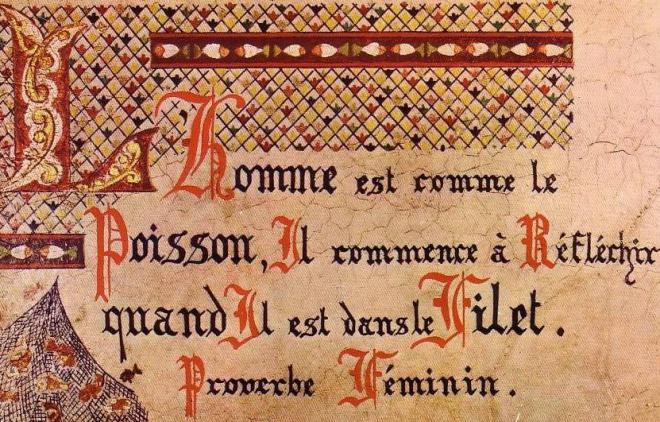 L'homme est comme le
Poisson, Il commence à Réfléchir
quand Il est dans le Filet.
Proverbe Féminin.